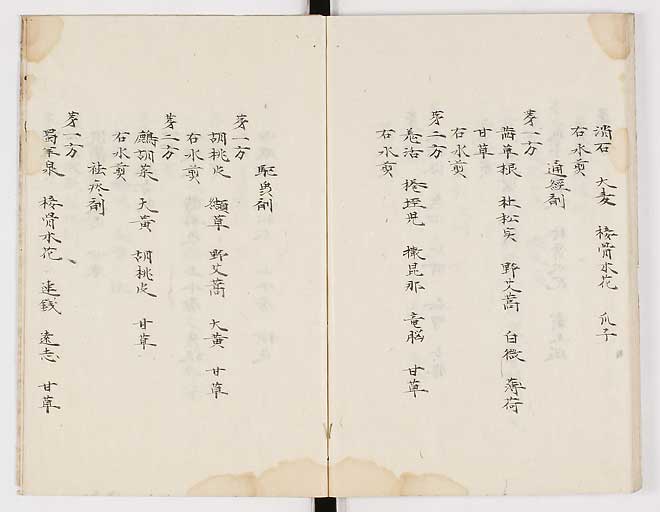 消石 大麦 接骨木花 瓜子
右水煎
通経剤
第一方
茜草根 杜松实 野艾蒿 白微 薄荷
甘草
右水煎
第二方
羌活 撒昆那 竜脳 甘草
右水煎
駆虫剤
第一方
胡桃皮 纈草 野艾蒿 大黄 甘草
右水煎
第二方
鷓胡菜 大黄 胡桃皮 甘草
右水煎
祛痰剤
第一方
蜀羊泉 接骨木花 連銭 遠志 甘草